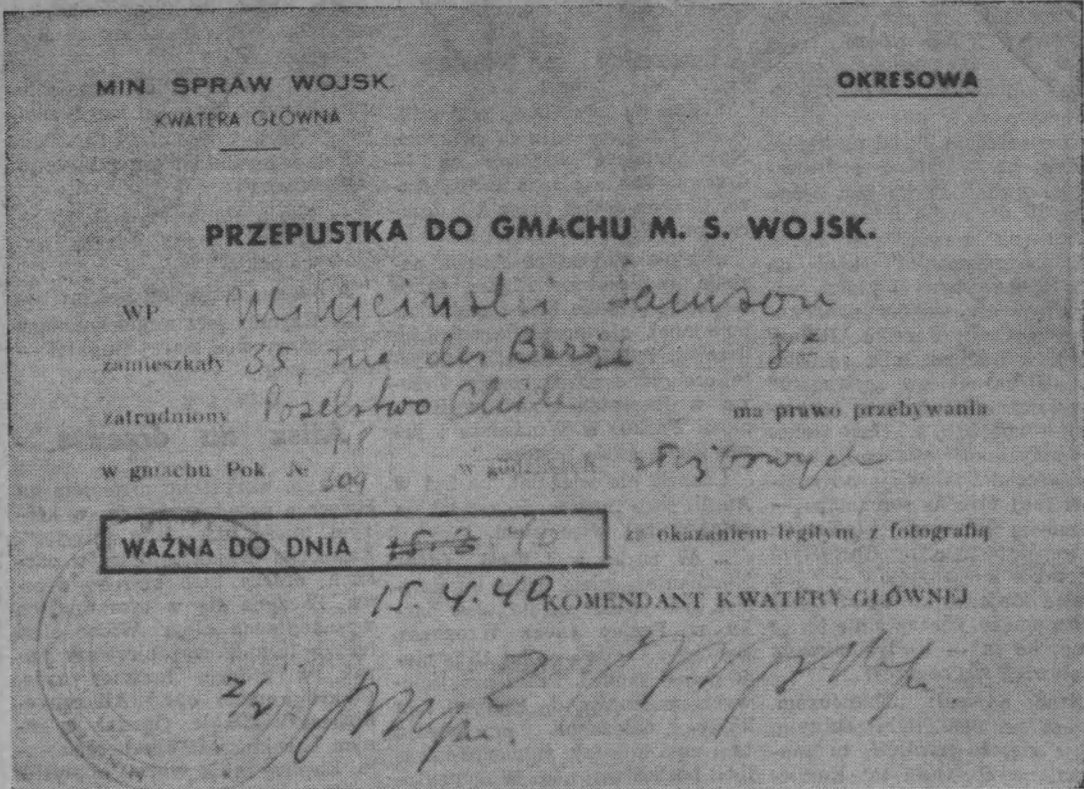 MIN. SPRAW WOJSK.
KWATERA GŁÓWNA
OKRESOWA
PRZEPUSTKA DO GMACHU M. S. WOJSK.
WP Samson
zamieszkały 35, rue 8e
zatrudniony Poselstwo Chile ma prawo przebywania
w gmachu Pok. № 609 w godzinach służbowych
WAŻNA DO DNIA 15.3.40 za okazaniem legitym. z fotografią
15.4.40 KOMENDANT KWATERY GŁÓWNEJ